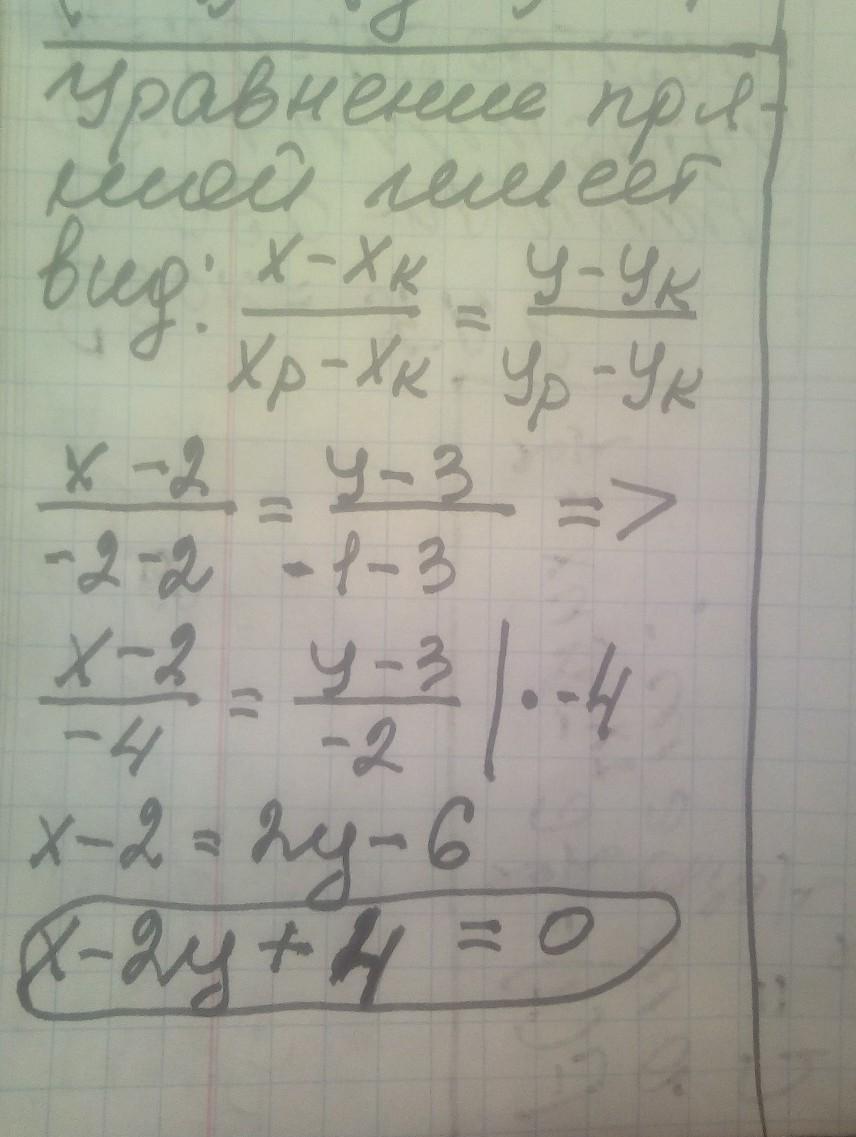 Уравнение пря-
мой имеет
вид: x-xк/xр-xк = y-yк/yр-yк
x-2/-2-2 = y-3/-1-3 =>
x-2/-4 = y-3/-2 | · -4
x-2 = 2y-6
x-2y+4 = 0